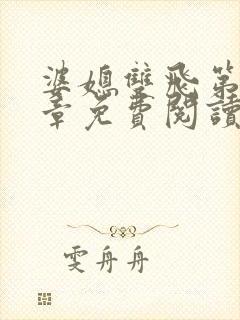 婆媳雙飛第
章免費閱讀
雯舟舟